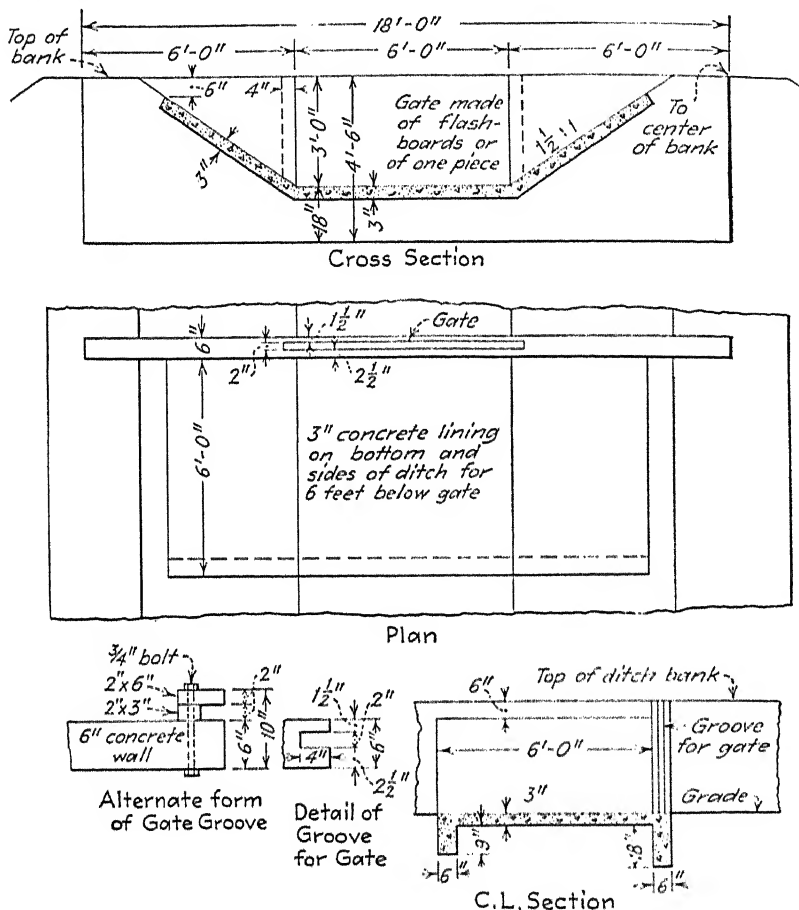 18'-0"
Top of
bank
6'-0"
6'-0"
6'-0"
6"
4"
3'-0"
4'-6"
Gate made
of flash-
boards or
of one piece
1½:1
To
center
of bank
3"
18"
3"
Cross Section
6"
1½"
Gate
2"
2½"
6'-0"
3" concrete lining
on bottom and
sides of ditch for
6 feet below gate
Plan
¾" bolt
2"x6"
2"x3"
6" concrete
wall
2"
10"
6"
Alternate form
of Gate Groove
1½"
2"
4"
6"
2½"
Detail of
Groove
for Gate
6"
Top of ditch bank
6'-0"
Groove
for gate
3"
Grade
9"
6"
8"
6"
C.L. Section